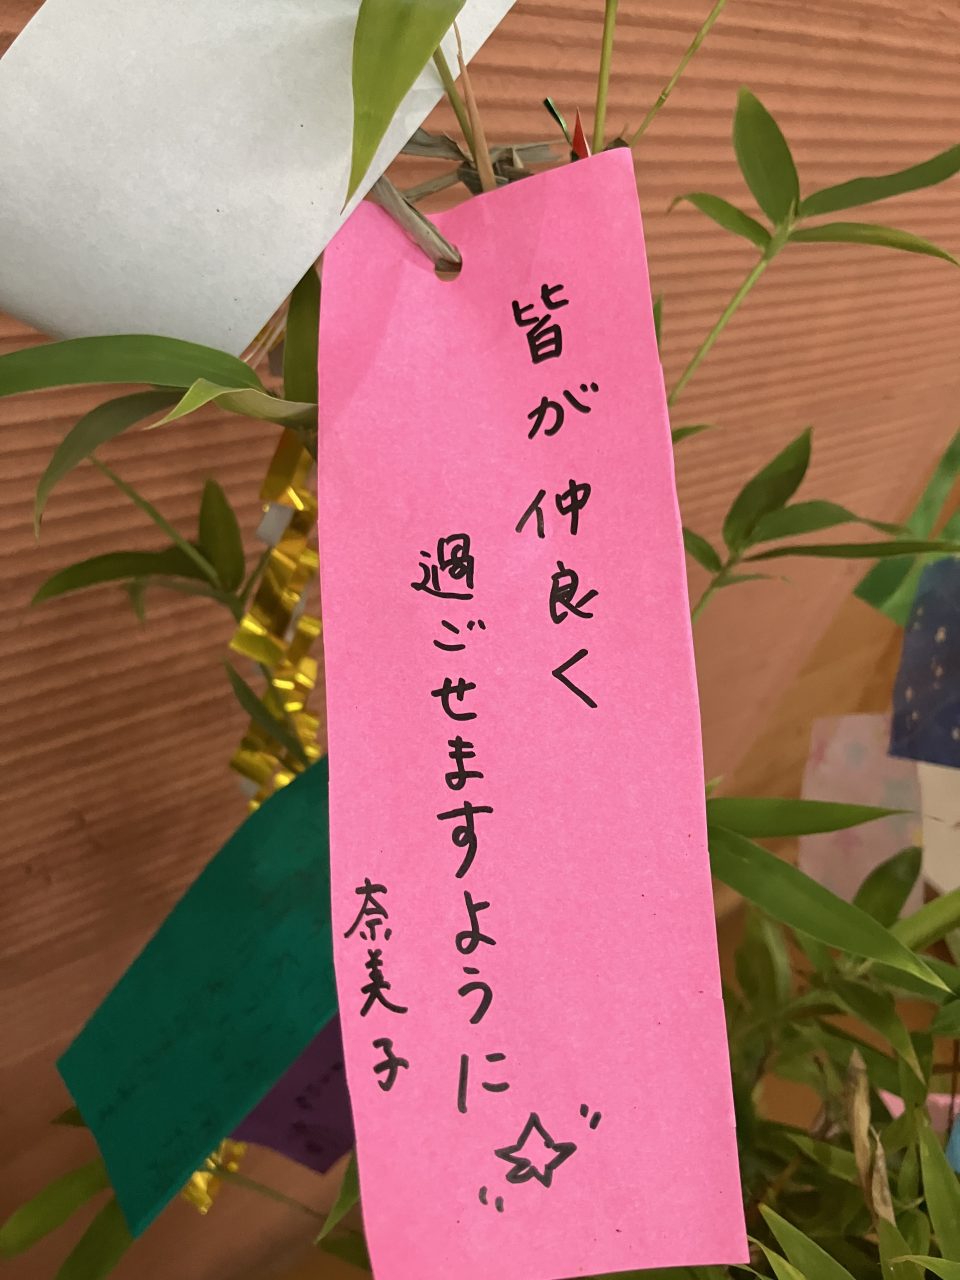 皆が仲良く
過ごせますように
奈美子